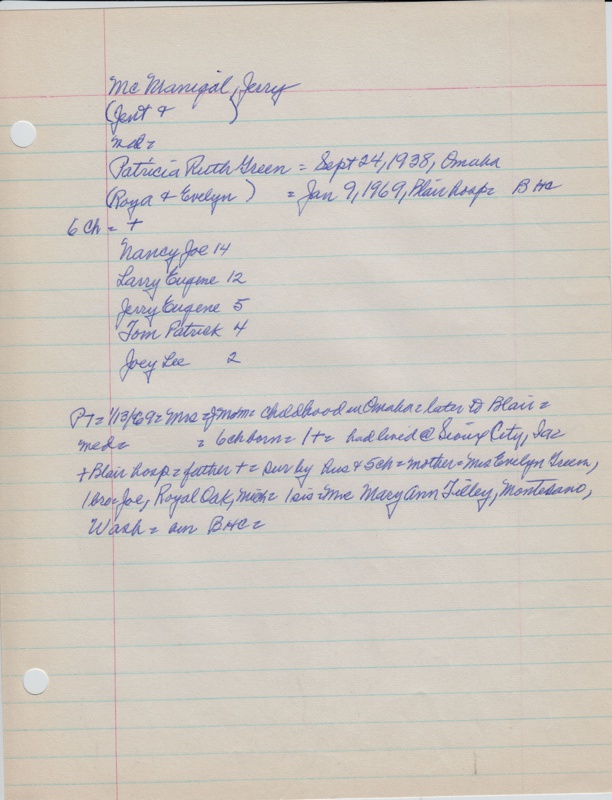 Mc Manigal, Jerry
(Jent &        )
md=
Patricia Ruth Green = Sept 24, 1938, Omaha
(Roya & Evelyn ) = Jan 9, 1969, Blair hosp= BHC
6 Ch = +
Nancy Joe 14
Larry Eugene 12
Jerry Eugene 5
Tom Patrick 4
Joey Lee 2
PT= 1/13/69= Mrs = J Mcm= childhood in Omaha= later to Blair=
med= = 6 ch born= 1+= had lived @ Sioux City, Ia=
+ Blair hosp= father += sur by hus & 5 ch= mother= Mrs Evelyn Green,
1 bro= Joe, Royal Oak, Mich= 1 sis= Mrs Mary Ann Tilley, Montesano,
Wash= BHC=